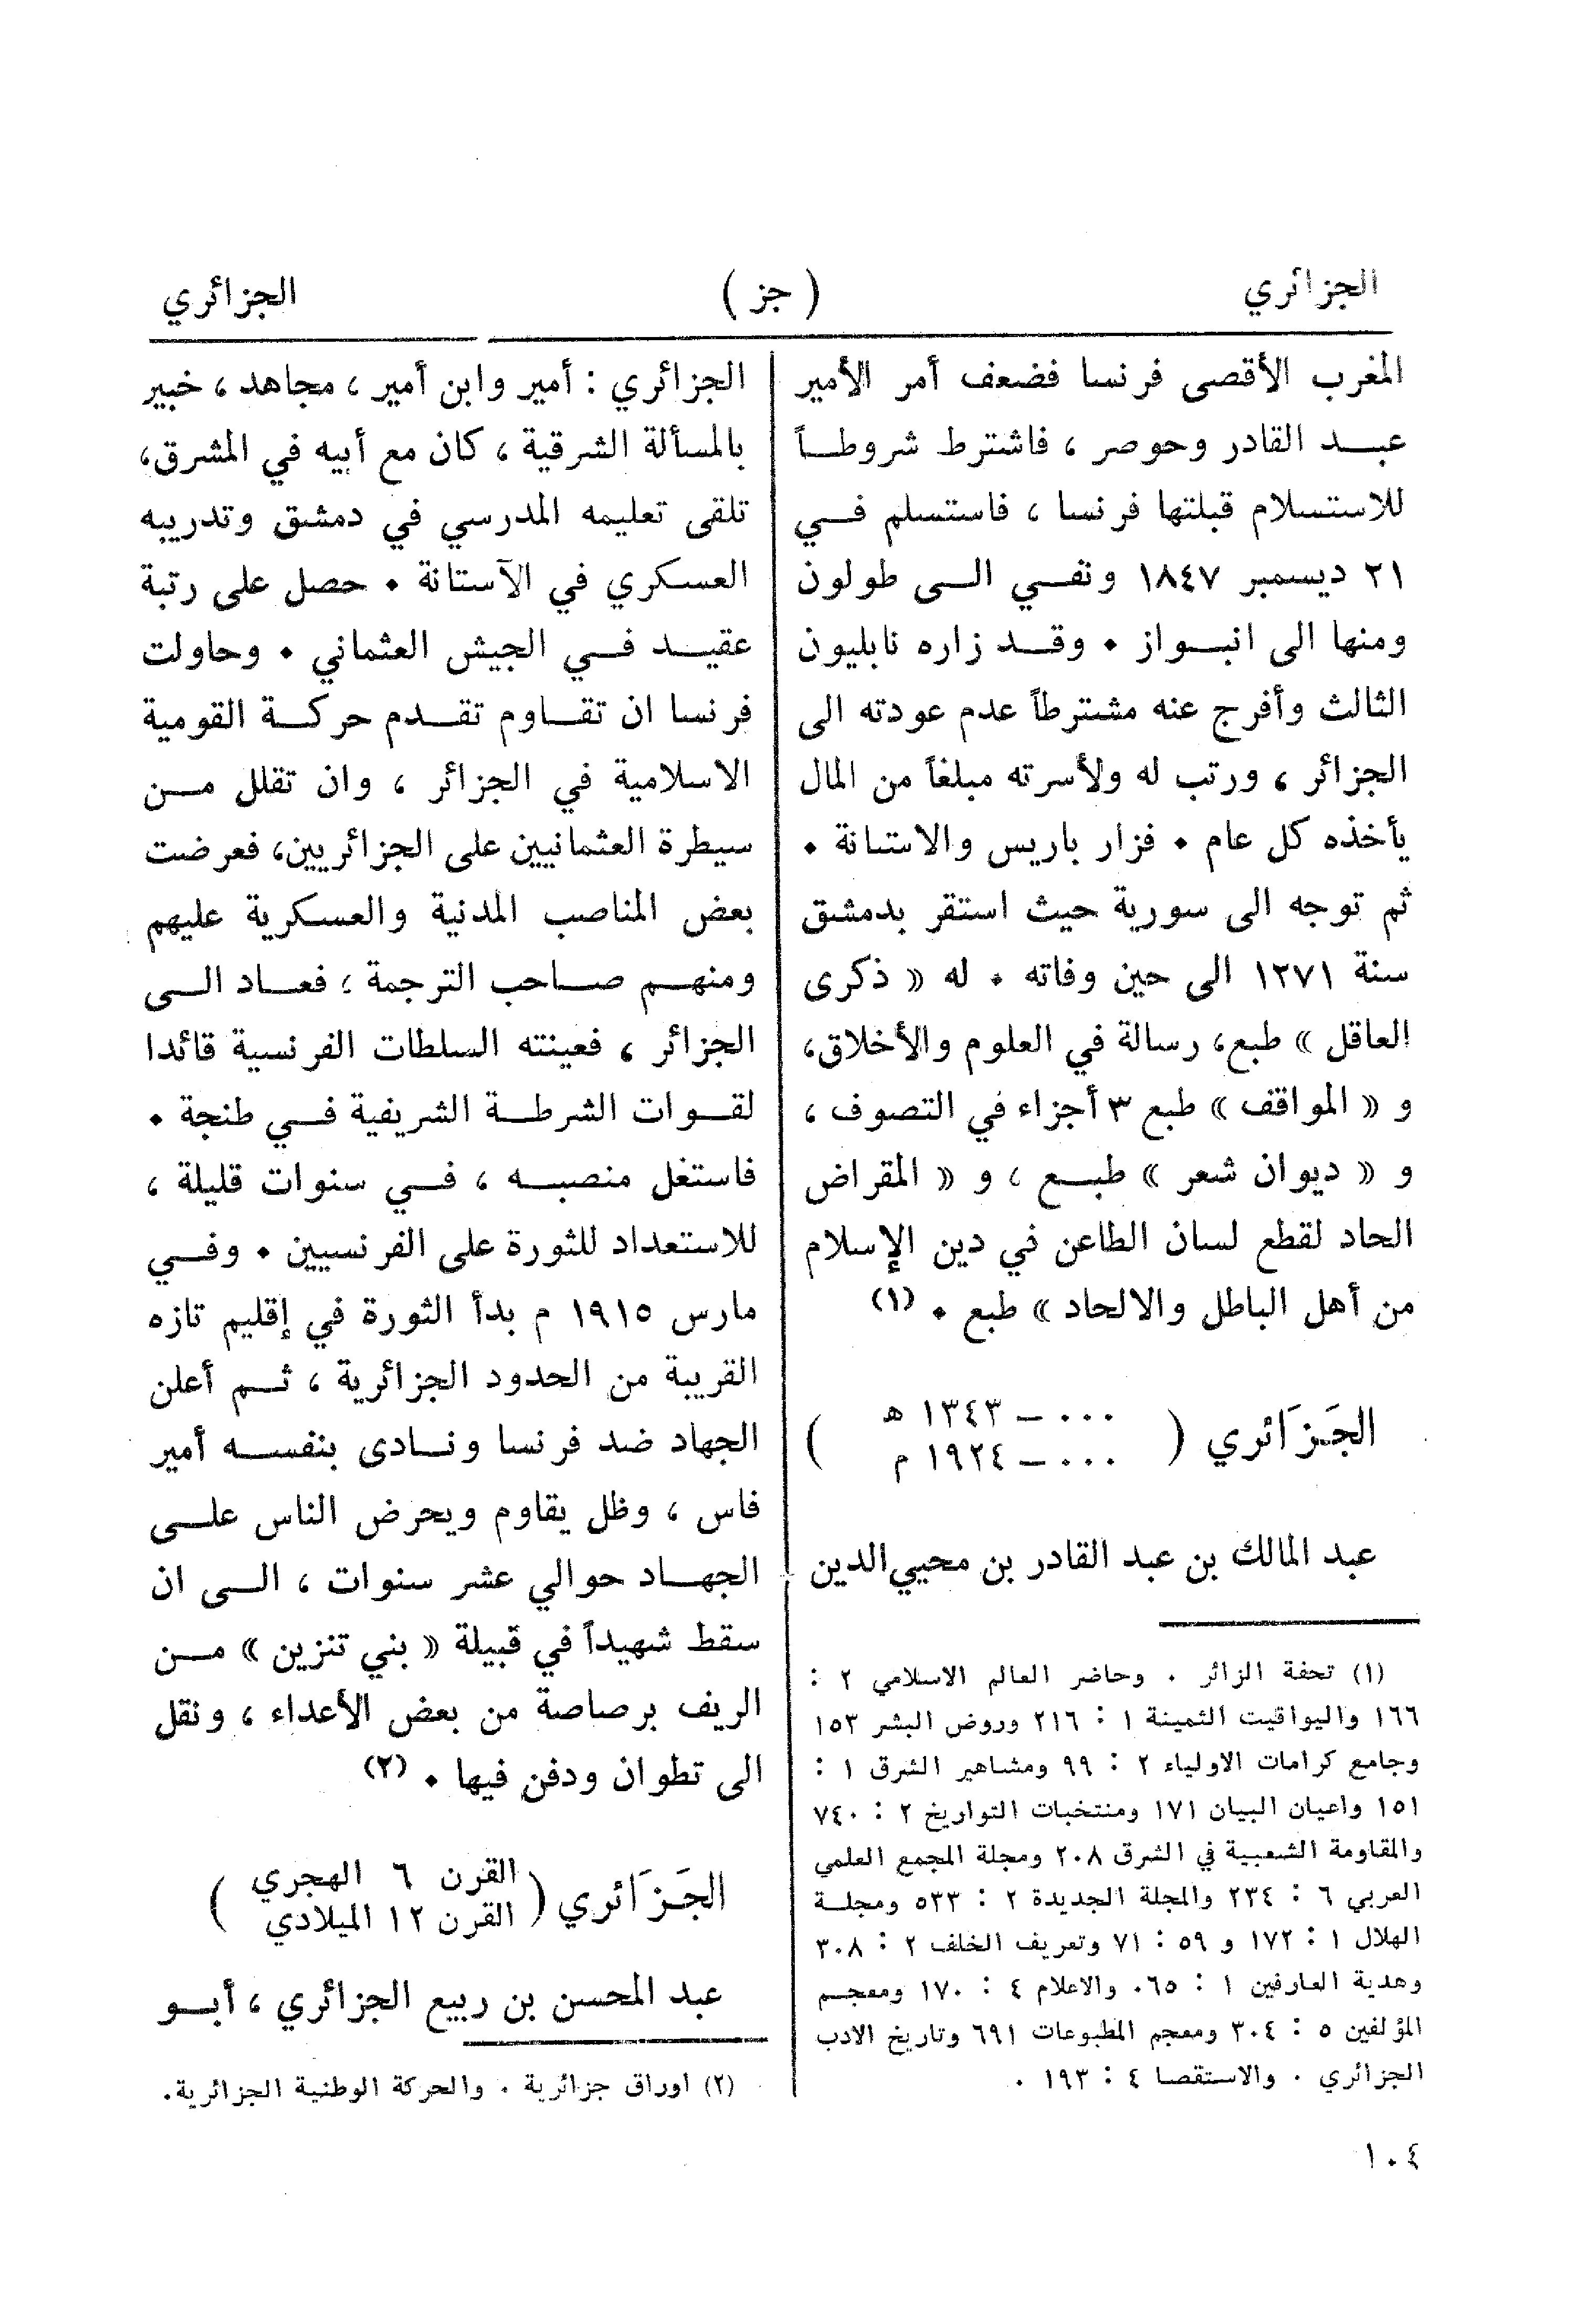 الجزائري ( جز ) الجزائري
المغرب الأقصى فرنسا فضعف أمر الأمير
عبد القادر وحوصر ، فاشترط شروطاً
للاستسلام قبلتها فرنسا ، فاستسلم في
٢١ ديسمبر ١٨٤٧ ونفي الى طولون
ومنها الى انبواز ٠ وقد زاره نابليون
الثالث وأفرج عنه مشترطاً عدم عودته الى
الجزائر ، ورتب له ولأسرته مبلغاً من المال
يأخذه كل عام ٠ فزار باريس والاستانة ٠
ثم توجه الى سورية حيث استقر بدمشق
سنة ١٢٧١ الى حين وفاته ٠ له « ذكرى
العاقل » طبع، رسالة في العلوم والأخلاق،
و « المواقف » طبع ٣ أجزاء في التصوف ،
و « ديوان شعر » طبع ، و « المقراض
الحاد لقطع لسان الطاعن في دين الإسلام
من أهل الباطل والالحاد » طبع ٠ (١)
الجَزَائري ( ٠٠٠ – ١٣٤٣ هـ )
٠٠٠ – ١٩٢٤ م
عبد المالك بن عبد القادر بن محيي الدين
(١) تحفة الزائر ٠ وحاضر العالم الاسلامي ٢ :
١٦٦ واليواقيت الثمينة ١ : ٢١٦ وروض البشر ١٥٣
وجامع كرامات الاولياء ٢ : ٩٩ ومشاهير الشرق ١ :
١٥١ واعيان البيان ١٧١ ومنتخبات التواريخ ٢ : ٧٤٠
والمقاومة الشعبية في الشرق ٢٠٨ ومجلة المجمع العلمي
العربي ٦ : ٢٣٤ والمجلة الجديدة ٢ : ٥٣٣ ومجلة
الهلال ١ : ١٧٢ و ٥٩ : ٧١ وتعريف الخلف ٢ : ٣٠٨
وهدية العارفين ١ : ٠٦٥ والاعلام ٤ : ١٧٠ ومعجم
المؤلفين ٥ : ٣٠٤ ومعجم المطبوعات ٦٩١ وتاريخ الادب
الجزائري ٠ والاستقصا ٤ : ١٩٣ ٠
الجزائري : أمير وابن أمير ، مجاهد ، خبير
بالمسألة الشرقية ، كان مع أبيه في المشرق،
تلقى تعليمه المدرسي في دمشق وتدريبه
العسكري في الآستانة ٠ حصل على رتبة
عقيد في الجيش العثماني ٠ وحاولت
فرنسا ان تقاوم تقدم حركة القومية
الاسلامية في الجزائر ، وان تقلل من
سيطرة العثمانيين على الجزائريين، فعرضت
بعض المناصب المدنية والعسكرية عليهم
ومنهم صاحب الترجمة ؛ فعاد الى
الجزائر ، فعينته السلطات الفرنسية قائدا
لقوات الشرطة الشريفية في طنجة ٠
فاستغل منصبه ، في سنوات قليلة ،
للاستعداد للثورة على الفرنسيين ٠ وفي
مارس ١٩١٥ م بدأ الثورة في إقليم تازه
القريبة من الحدود الجزائرية ، ثم أعلن
الجهاد ضد فرنسا ونادى بنفسه أمير
فاس ، وظل يقاوم ويحرض الناس على
الجهاد حوالي عشر سنوات ، الى ان
سقط شهيداً في قبيلة « بني تنزين » من
الريف برصاصة من بعض الأعداء ، ونقل
الى تطوان ودفن فيها ٠ (٢)
الجَزَائري ( القرن ٦ الهجري )
القرن ١٢ الميلادي
عبد المحسن بن ربيع الجزائري ، أبو
(٢) اوراق جزائرية ٠ والحركة الوطنية الجزائرية.
١٠٤